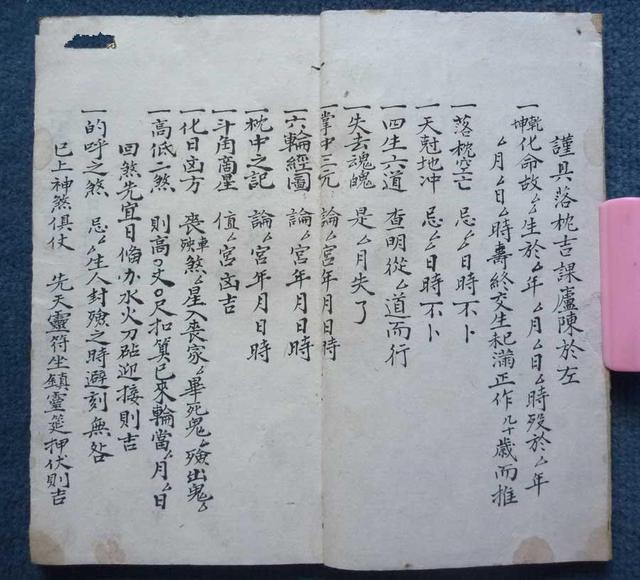 謹具落枕吉課廬陳於左
一乾坤化命故厶厶生於厶年厶月厶日厶時歿於厶年
厶月厶日厶時壽終交生杞滿正作几十歲而推
一落枕空亡 忌厶日時不卜
一天尅地冲 忌厶日時不卜
一四生六道 查明從厶道而行
一失去魂魄 是厶月失了
一掌中三元 論厶宮年月日時
一六輪經圖 論厶宮年月日時
一枕中之記 論厶宮年月日時
一斗角商星 值厶宮凶吉
一化日凶方 喪車殃煞厶星入喪家厶畢死鬼厶殮出鬼厶
一高低二煞 則高〇丈〇尺扣算已來輪當厶月厶日
回煞先宜日偹办水火刀砧迎接則吉
一的呼之煞 忌厶生人封殮之時避刻無咎
已上神煞俱仗 先天靈符坐鎮靈筵押伏則吉